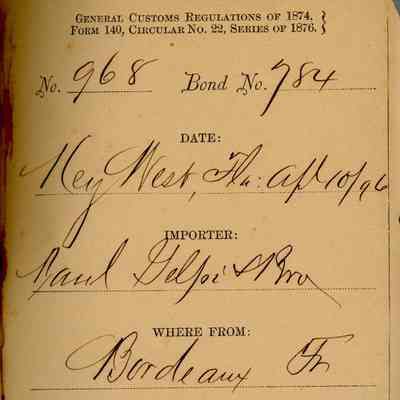 GENERAL CUSTOMS REGULATIONS OF 1874.
FORM 140, CIRCULAR NO. 22, SERIES OF 1876.
No. 968 Bond No. 784
DATE:
Key West, Fla: Apl 10/96
IMPORTER:
Paul Gelpi & Bro
WHERE FROM:
Bordeaux Fr